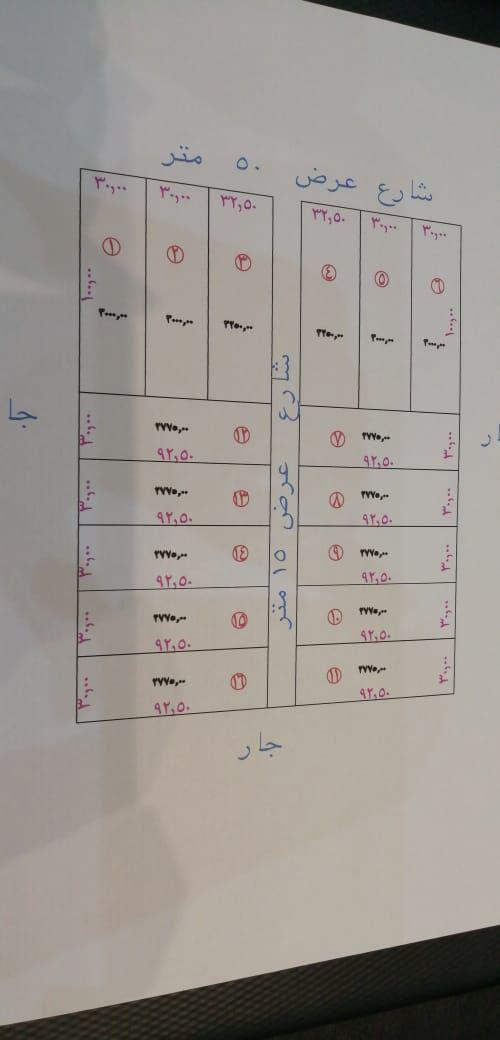 شارع عرض ٥٠ متر
٣٠,٠٠
٣٠,٠٠
٣٢,٥٠
٣٢,٥٠
٣٠,٠٠
٣٠,٠٠
١
٢
٣
٤
٥
٦
١٠٠,٠٠
١٠٠,٠٠
٣٠٠٠,٠٠
٣٠٠٠,٠٠
٣٢٥٠,٠٠
٣٢٥٠,٠٠
٣٠٠٠,٠٠
٣٠٠٠,٠٠
شارع عرض ١٥ متر
٣٠,٠٠
٢٧٧٥,٠٠
٩٢,٥٠
١٢
٧
٢٧٧٥,٠٠
٩٢,٥٠
٣٠,٠٠
٣٠,٠٠
٢٧٧٥,٠٠
٩٢,٥٠
١٣
٨
٢٧٧٥,٠٠
٩٢,٥٠
٣٠,٠٠
٣٠,٠٠
٢٧٧٥,٠٠
٩٢,٥٠
١٤
٩
٢٧٧٥,٠٠
٩٢,٥٠
٣٠,٠٠
٣٠,٠٠
٢٧٧٥,٠٠
٩٢,٥٠
١٥
١٠
٢٧٧٥,٠٠
٩٢,٥٠
٣٠,٠٠
٣٠,٠٠
٢٧٧٥,٠٠
٩٢,٥٠
١٦
١١
٢٧٧٥,٠٠
٩٢,٥٠
٣٠,٠٠
جار